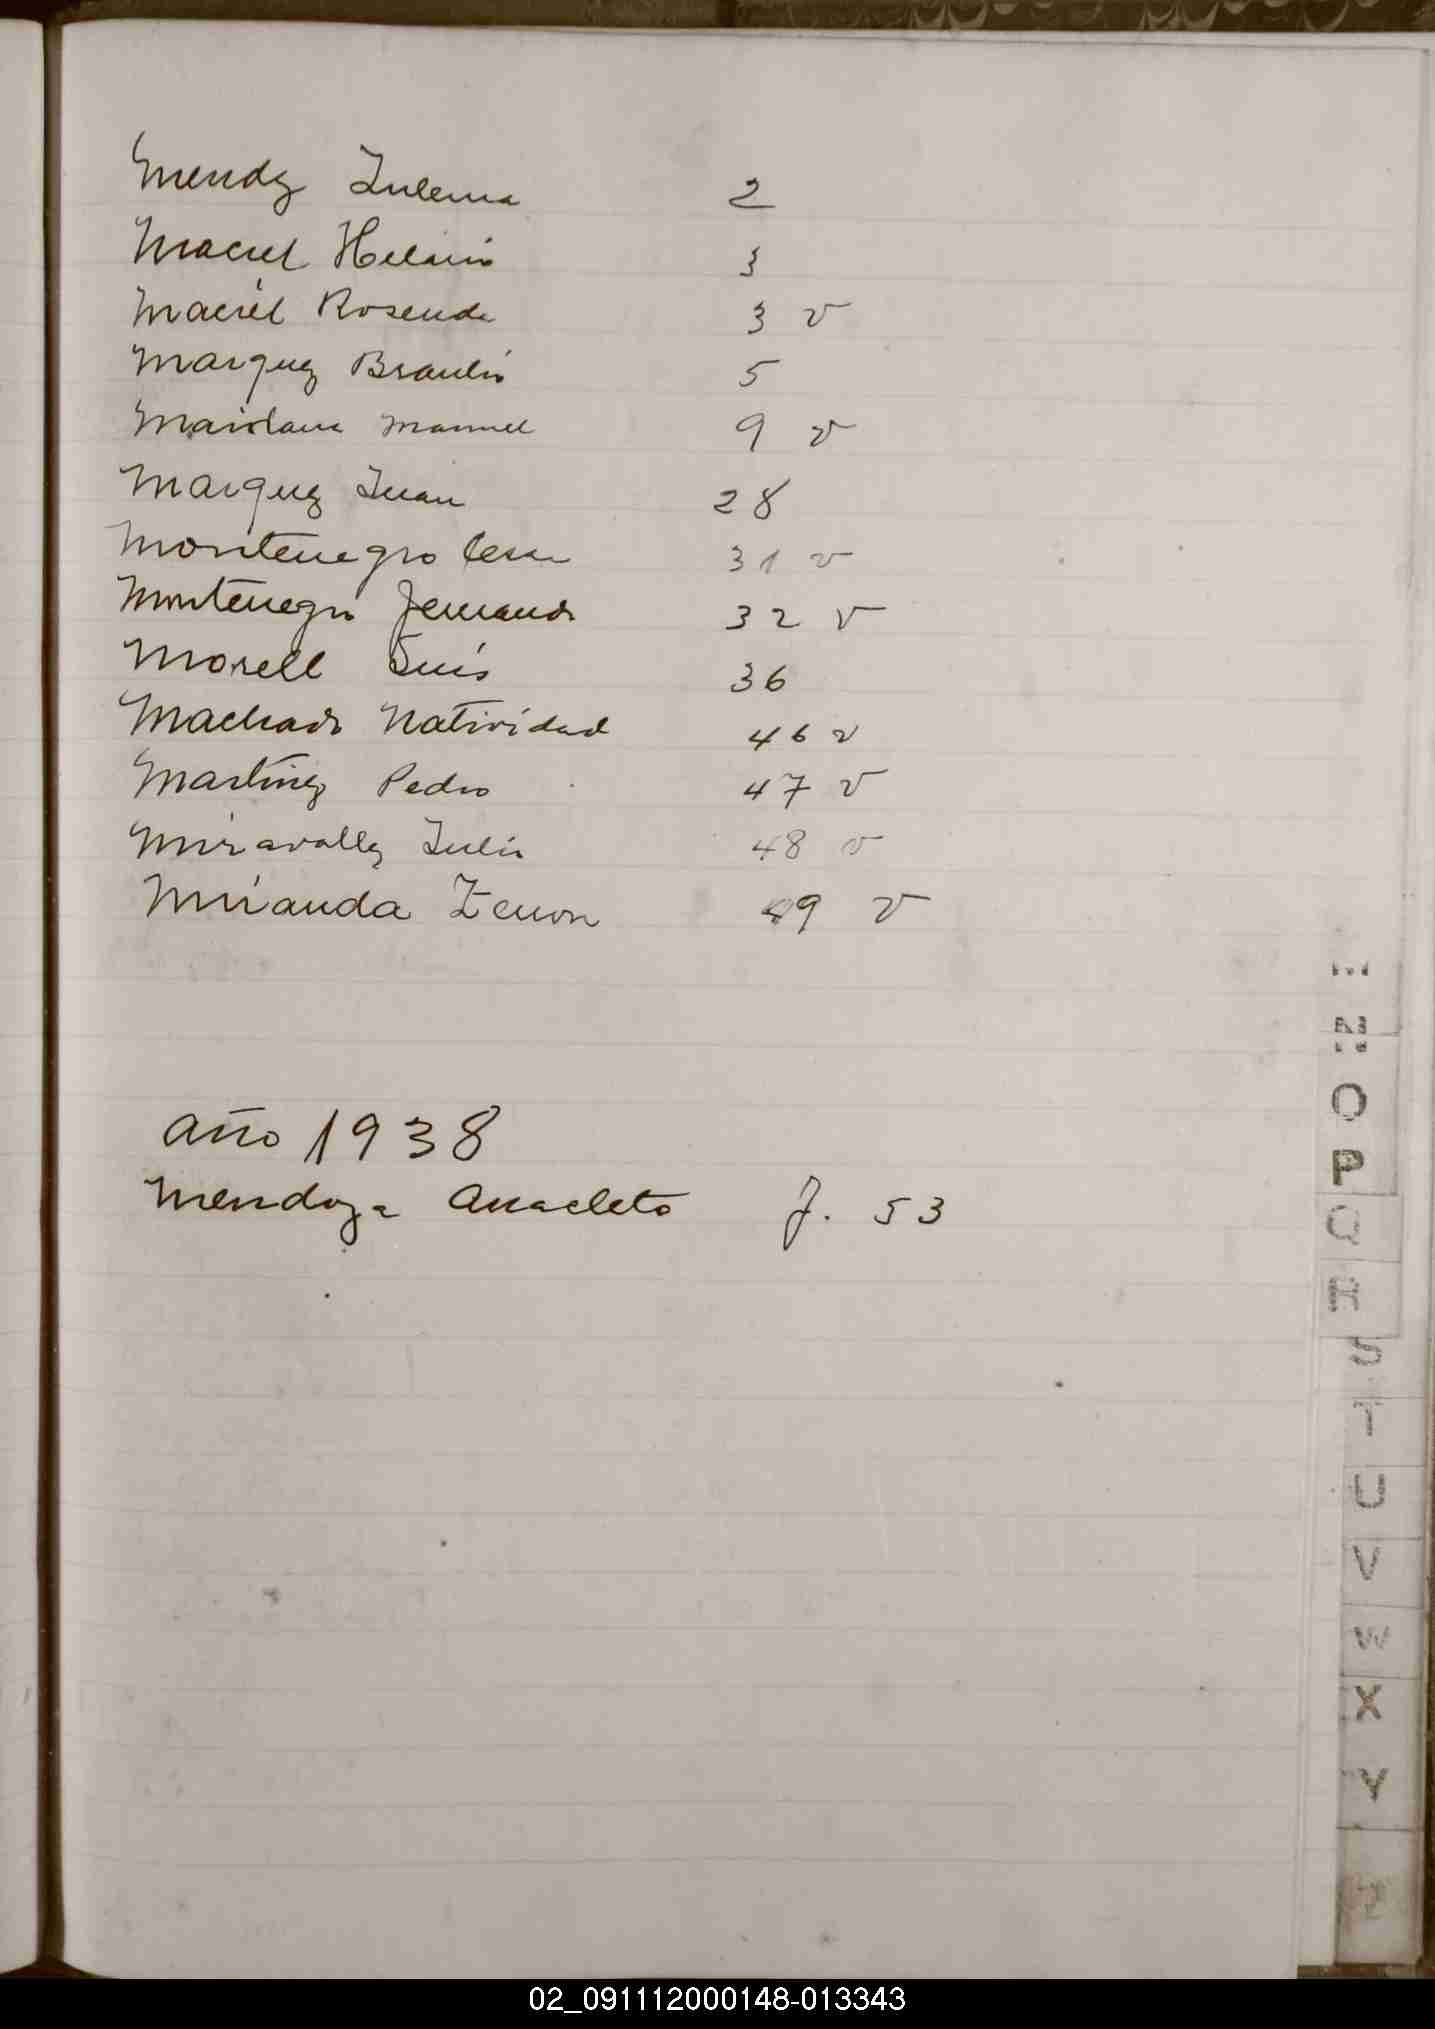 Mendez Zulema 2
Maciel Helario 3
Maciel Rosendo 3 v
Marquez Braulio 5
Maidana Manuel 9 v
Marquez Juan 28
Montenegro Cesar 31 v
Montenegro Fernando 32 v
Morell Luis 36
Machado Natividad 46 v
Martinez Pedro 47 v
Miravalles Julio 48 v
Miranda Zenon 49 v
Año 1938
Mendoza Anacleto f. 53
M
N
O
P
Q
R
S
T
U
V
W
X
Y
Z
02_091112000148-013343